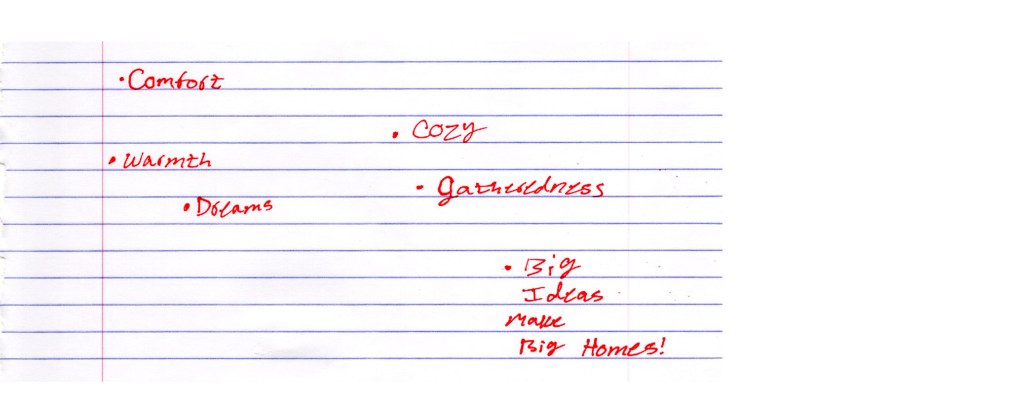 • Comfort
• Cozy
• Warmth
• Gatheredness
• Dreams
• Big
Ideas
Make
Big Homes!